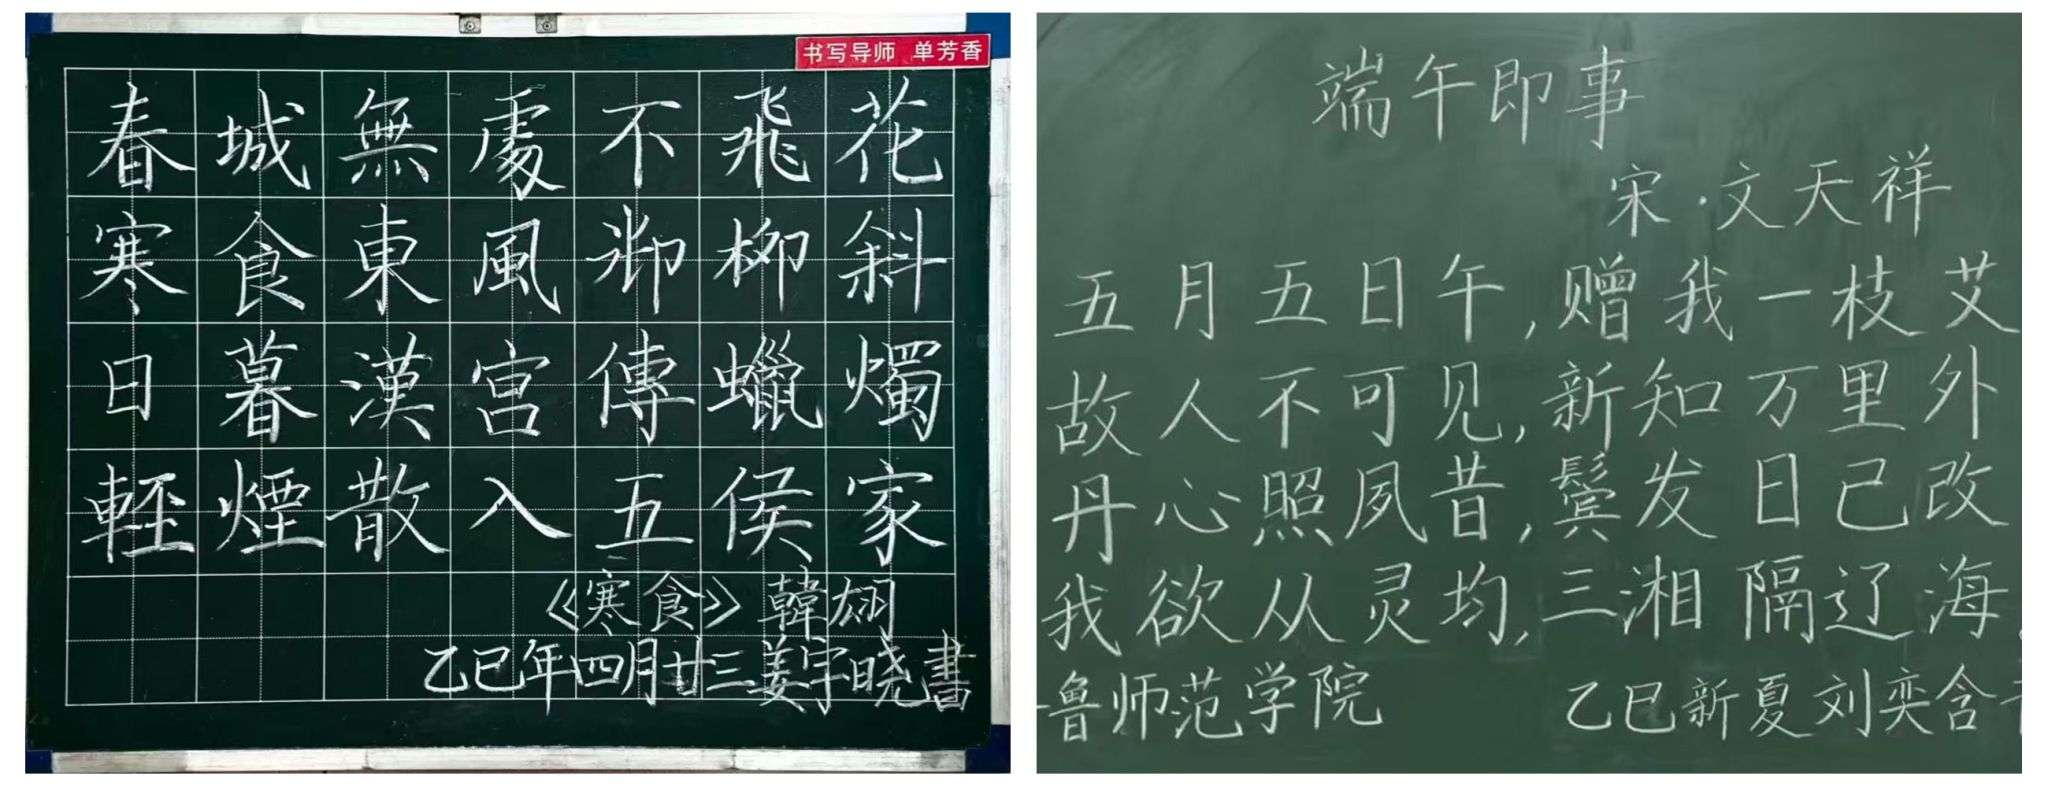 书写导师 单芳香
春城無處不飛花
寒食東風御柳斜
日暮漢宮傳蠟燭
輕煙散入五侯家
《寒食》韓翃
乙巳年四月廿三姜宇晓書
端午即事
宋·文天祥
五月五日午,赠我一枝艾
故人不可见,新知万里外
丹心照夙昔,鬓发日已改
我欲从灵均,三湘隔辽海
鲁师范学院
乙巳新夏刘奕含